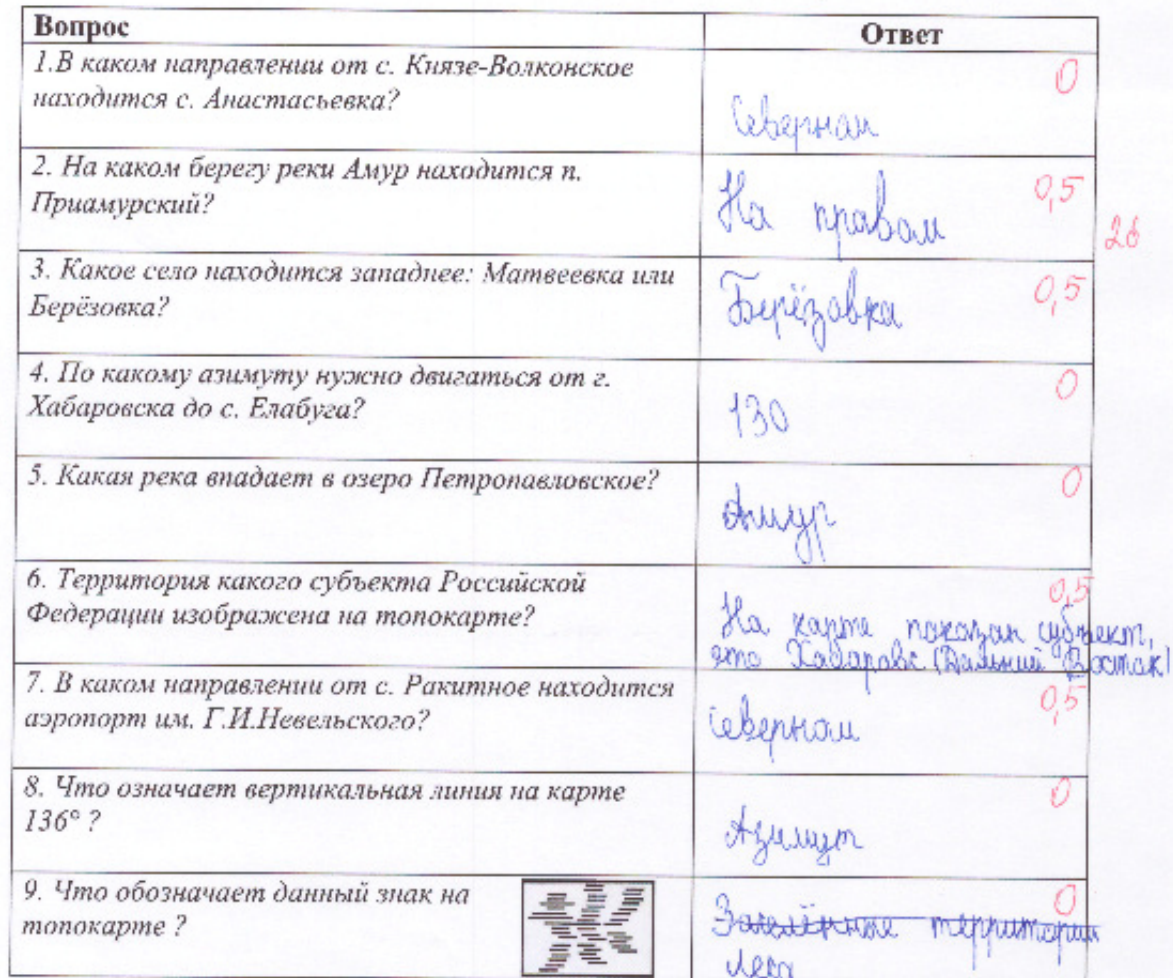 Вопрос
Ответ
1.В каком направлении от с. Князе-Волконское
находится с. Анастасьевка?
0
Северном
2. На каком берегу реки Амур находится п.
Приамурский?
0,5
На правом
2б
3. Какое село находится западнее: Матвеевка или
Берёзовка?
0,5
Берёзовка
4. По какому азимуту нужно двигаться от г.
Хабаровска до с. Елабуга?
0
130
5. Какая река впадает в озеро Петропавловское?
0
Амур
6. Территория какого субъекта Российской
Федерации изображена на топокарте?
0,5
На карте показан субъект,
это Хабаровс. (Дальний Восток)
7. В каком направлении от с. Ракитное находится
аэропорт им. Г.И.Невельского?
0,5
Северном
8. Что означает вертикальная линия на карте
136° ?
0
Азимут
9. Что обозначает данный знак на
топокарте ?
0
территории
Леса